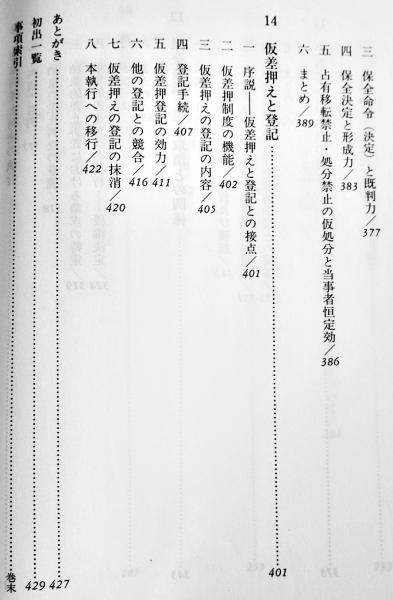 三 保全命令（決定）と既判力／377
四 保全決定と形成力／383
五 占有移転禁止・処分禁止の仮処分と当事者恒定効／386
六 まとめ／389
14 仮差押えと登記……401
一 序説——仮差押えと登記との接点／401
二 仮差押制度の機能／402
三 仮差押えの登記の内容／405
四 登記手続／407
五 仮差押登記の効力／411
六 他の登記との競合／416
七 仮差押えの登記の抹消／420
八 本執行への移行／422
あとがき……427
初出一覧……429
事項索引……巻末